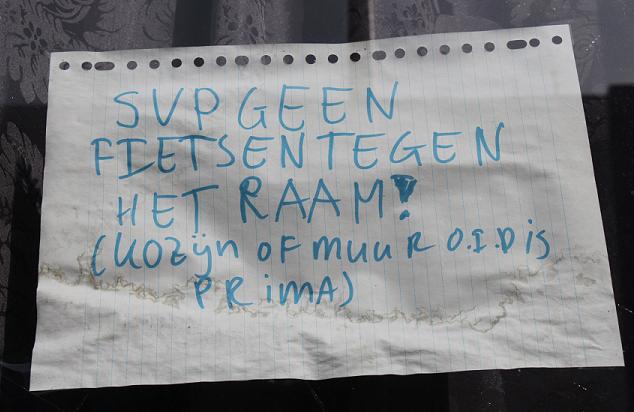 SVP GEEN
FIETSEN TEGEN
HET RAAM!
(KOZIJN OF MUUR O.I.D is
PRiMA)